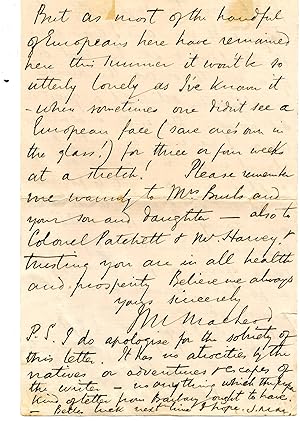 But as most of the handful
of Europeans here have remained
here this summer it won't be so
utterly lonely as I've known it
- when sometimes one didn't see a
European face (save one's own in
the glass!) for three or four weeks
at a stretch! Please remember
me warmly to Mrs and
your son and daughter — also to
Colonel Patchett & Mr. Harvey. &
trusting you are in all health
and prosperity Believe me always
yours sincerely
P.S. I do apologise for the sobriety of
this letter. It has no atrocities by the
natives or adventures & escapes of
the writer — no anything which the
kind of letter from ought to have.
— Better luck next time I hope.